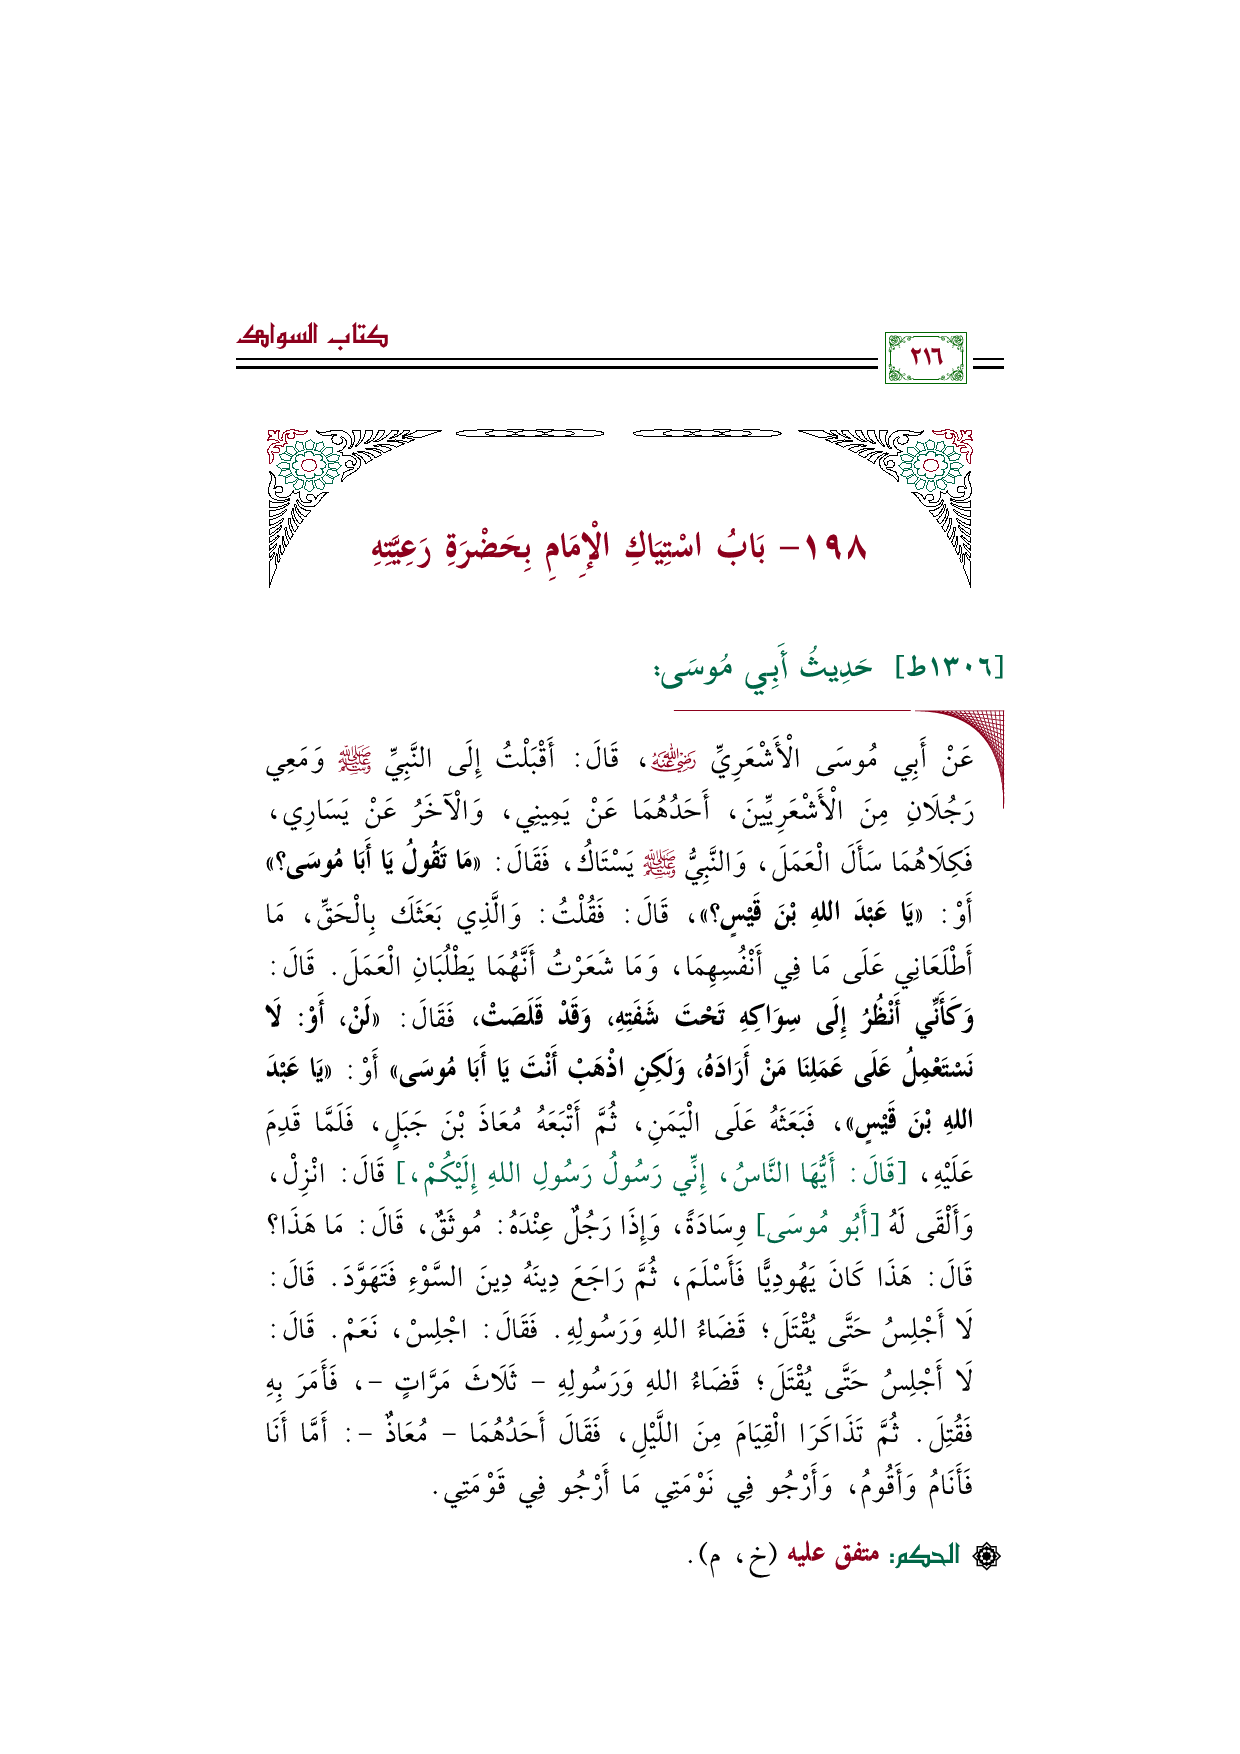 كتاب السواك
٢١٦
١٩٨- بَابُ اسْتِيَاكِ الْإِمَامِ بِحَضْرَةِ رَعِيَّتِهِ
[١٣٠٦ط] حَدِيثُ أَبِي مُوسَى:
عَنْ أَبِي مُوسَى الْأَشْعَرِيِّ رضي الله عنه، قَالَ: أَقْبَلْتُ إِلَى النَّبِيِّ ﷺ وَمَعِي
رَجُلَانِ مِنَ الْأَشْعَرِيِّينَ، أَحَدُهُمَا عَنْ يَمِينِي، وَالْآخَرُ عَنْ يَسَارِي،
فَكِلَاهُمَا سَأَلَ الْعَمَلَ، وَالنَّبِيُّ ﷺ يَسْتَاكُ، فَقَالَ: «مَا تَقُولُ يَا أَبَا مُوسَى؟»
أَوْ: «يَا عَبْدَ اللهِ بْنَ قَيْسٍ؟»، قَالَ: فَقُلْتُ: وَالَّذِي بَعَثَكَ بِالْحَقِّ، مَا
أَطْلَعَانِي عَلَى مَا فِي أَنْفُسِهِمَا، وَمَا شَعَرْتُ أَنَّهُمَا يَطْلُبَانِ الْعَمَلَ. قَالَ:
وَكَأَنِّي أَنْظُرُ إِلَى سِوَاكِهِ تَحْتَ شَفَتِهِ، وَقَدْ قَلَصَتْ، فَقَالَ: «لَنْ، أَوْ: لَا
نَسْتَعْمِلُ عَلَى عَمَلِنَا مَنْ أَرَادَهُ، وَلَكِنِ اذْهَبْ أَنْتَ يَا أَبَا مُوسَى» أَوْ: «يَا عَبْدَ
اللهِ بْنَ قَيْسٍ»، فَبَعَثَهُ عَلَى الْيَمَنِ، ثُمَّ أَتْبَعَهُ مُعَاذَ بْنَ جَبَلٍ، فَلَمَّا قَدِمَ
عَلَيْهِ، [قَالَ: أَيُّهَا النَّاسُ، إِنِّي رَسُولُ رَسُولِ اللهِ إِلَيْكُمْ،] قَالَ: انْزِلْ،
وَأَلْقَى لَهُ [أَبُو مُوسَى] وِسَادَةً، وَإِذَا رَجُلٌ عِنْدَهُ: مُوثَقٌ، قَالَ: مَا هَذَا؟
قَالَ: هَذَا كَانَ يَهُودِيًّا فَأَسْلَمَ، ثُمَّ رَاجَعَ دِينَهُ دِينَ السَّوْءِ فَتَهَوَّدَ. قَالَ:
لَا أَجْلِسُ حَتَّى يُقْتَلَ؛ قَضَاءُ اللهِ وَرَسُولِهِ. فَقَالَ: اجْلِسْ، نَعَمْ. قَالَ:
لَا أَجْلِسُ حَتَّى يُقْتَلَ؛ قَضَاءُ اللهِ وَرَسُولِهِ - ثَلَاثَ مَرَّاتٍ -، فَأَمَرَ بِهِ
فَقُتِلَ. ثُمَّ تَذَاكَرَا الْقِيَامَ مِنَ اللَّيْلِ، فَقَالَ أَحَدُهُمَا - مُعَاذٌ -: أَمَّا أَنَا
فَأَنَامُ وَأَقُومُ، وَأَرْجُو فِي نَوْمَتِي مَا أَرْجُو فِي قَوْمَتِي.
الحكم: متفق عليه (خ، م).